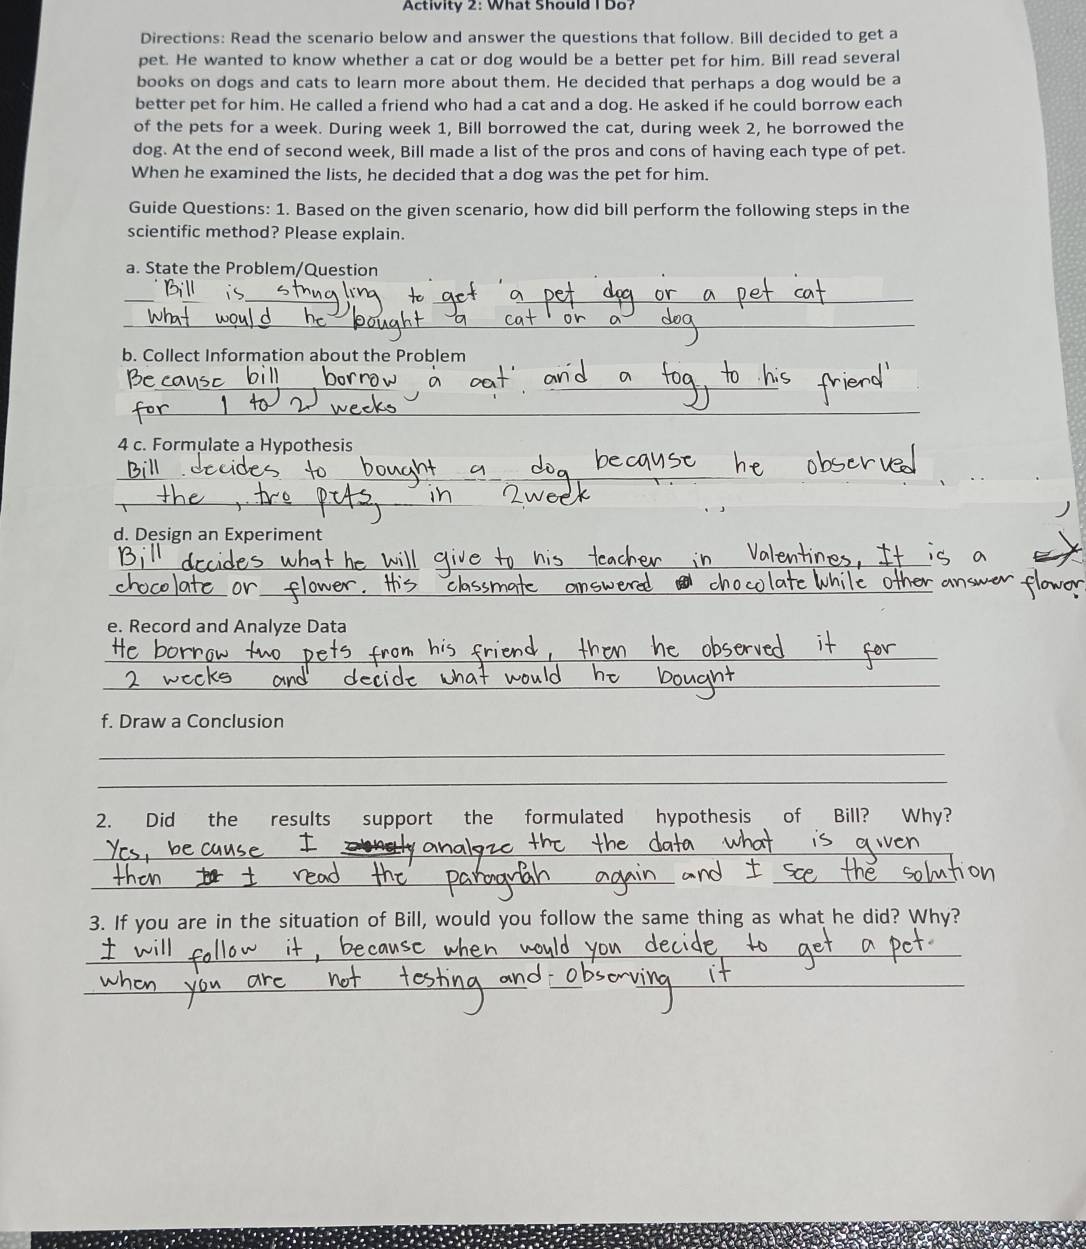 Activity 2: What Should I Do?
Directions: Read the scenario below and answer the questions that follow. Bill decided to get a
pet. He wanted to know whether a cat or dog would be a better pet for him. Bill read several
books on dogs and cats to learn more about them. He decided that perhaps a dog would be a
better pet for him. He called a friend who had a cat and a dog. He asked if he could borrow each
of the pets for a week. During week 1, Bill borrowed the cat, during week 2, he borrowed the
dog. At the end of second week, Bill made a list of the pros and cons of having each type of pet.
When he examined the lists, he decided that a dog was the pet for him.
Guide Questions: 1. Based on the given scenario, how did bill perform the following steps in the
scientific method? Please explain.
a. State the Problem/Question
Bill is strugling to get a pet dog or a pet cat
what would he bought a cat or a dog
b. Collect Information about the Problem
Because bill borrow a cat and a fog, to his friend
for 1 to 2 weeks
4 c. Formulate a Hypothesis
Bill decides to bought a dog because he observed
the, two pets, in 2week
d. Design an Experiment
Bill decides what he will give to his teacher in Valentines, It is a
chocolate or flower. His classmate answered chocolate while other answer flower
e. Record and Analyze Data
He borrow two pets from his friend, then he observed it for
2 weeks and decide what would he bought
f. Draw a Conclusion
2. Did the results support the formulated hypothesis of Bill? Why?
Yes, because I analgze the the data what is given
then I read the paragraph again and I see the solution
3. If you are in the situation of Bill, would you follow the same thing as what he did? Why?
I will follow it, because when would you decide to get a pet.
when you are not testing and observing it